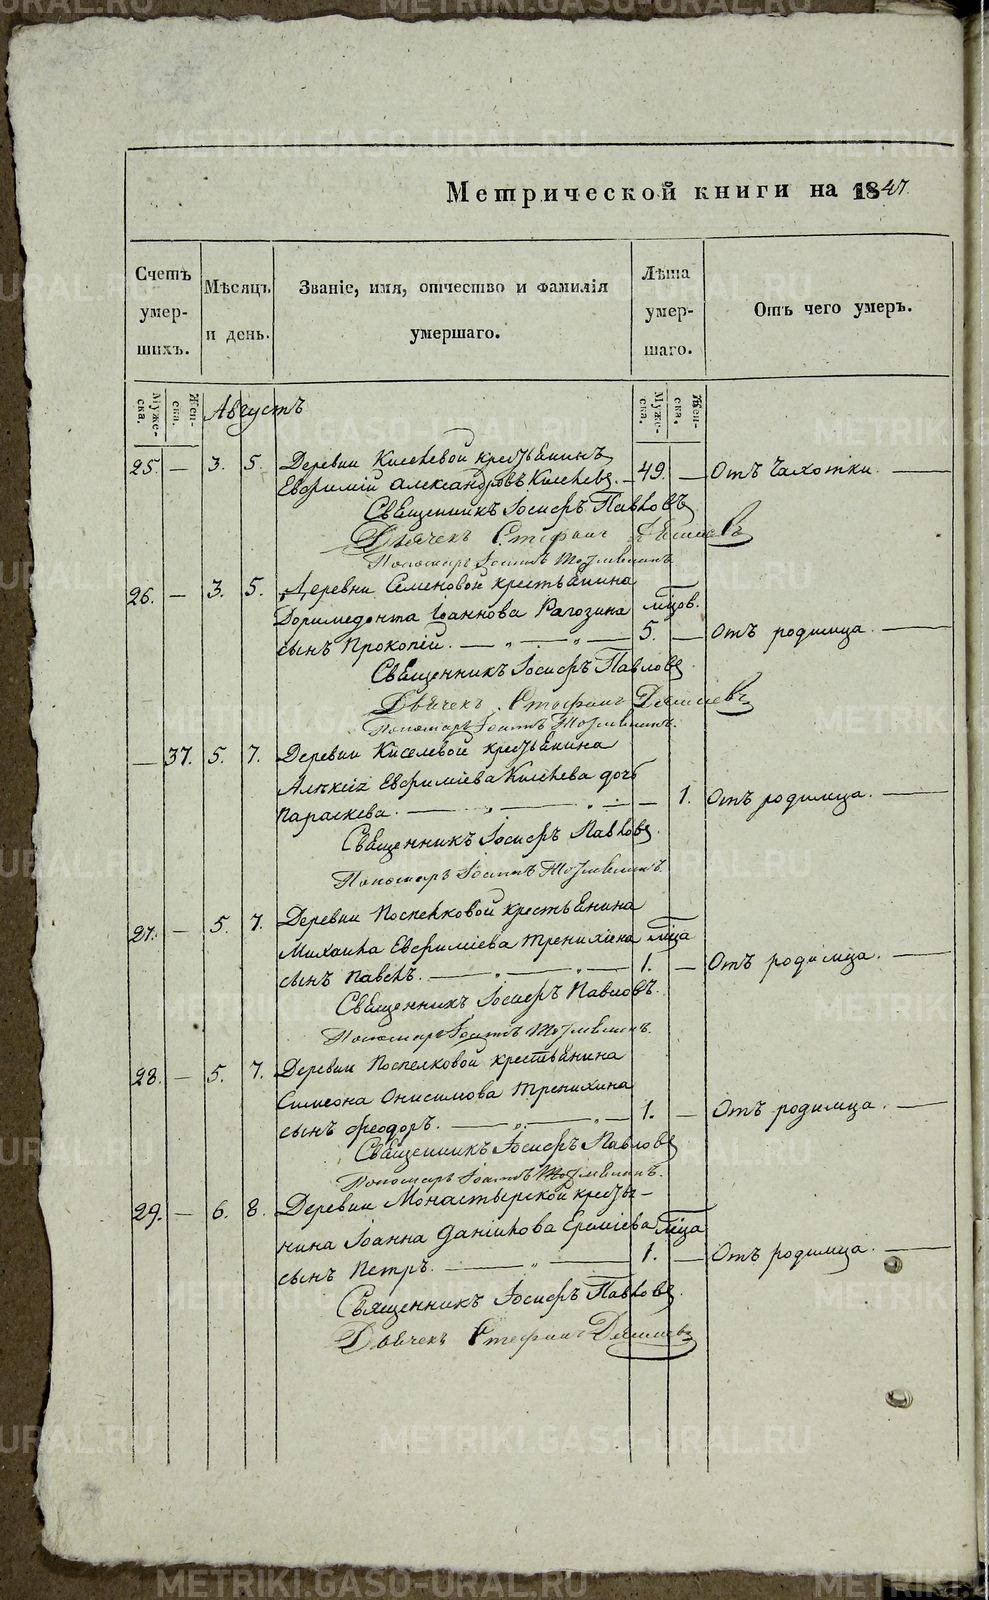 Метрической книги на 1847
Счетъ умер-шихъ.
Мѣсяцъ и день.
Званіе, имя, отчество и фамилія умершаго.
Лѣта умер-шаго.
Отъ чего умеръ.
Муже-ска.
Жен-ска.
Муже-ска.
Жен-ска.
Августъ
25. — 3. 5. Деревни Киселевой крестьянинъ
Евфимій Александровъ Киселевъ. — 49. — Отъ Чахотки. —
Священникъ Іосифъ Павловъ
Дьячекъ Стефанъ
Пономарь Іоаннъ
26. — 3. 5. Деревни Семеновой крестьянина
Доримедонта Іаннова Рагозина мцов.
сынъ Прокопій. — „ — „ — 5. — Отъ родимца. —
Священникъ Іосифъ Павловъ
Дьячекъ Стефанъ
Пономарь Іоаннъ
— 37. 5. 7. Деревни Киселевой крестьянина
Алексія Евфиміева Киселева дочь
Параскева. — „ — „ — 1. Отъ родимца. —
Священникъ Іосифъ Павловъ.
Пономарь Іоаннъ
27. — 5. 7. Деревни Поспелковой крестьянина
Михаила Евфиміева Трепихина мца
сынъ Павелъ. — „ — „ — 1. — Отъ родимца. —
Священникъ Іосифъ Павловъ.
Пономарь Іоаннъ
28. — 5. 7. Деревни Поспелковой крестьянина
Симеона Онисимова Трепихина
сынъ Феодоръ. — „ — „ — 1. — Отъ родимца. —
Священникъ Іосифъ Павловъ
Пономарь Іоаннъ
29. — 6. 8. Деревни Монастырской крестья-
нина Іоанна Даніилова Ереміева мца
сынъ Петръ. — „ — 1. — Отъ родимца. —
Священникъ Іосифъ Павловъ.
Дьячекъ Стефанъ
METRIKI.GASO-URAL.RU